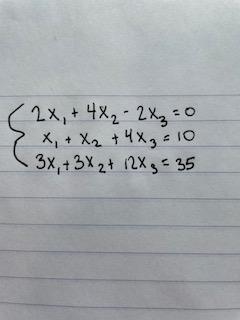 2x₁ + 4x₂ - 2x₃ = 0
x₁ + x₂ + 4x₃ = 10
3x₁ + 3x₂ + 12x₃ = 35